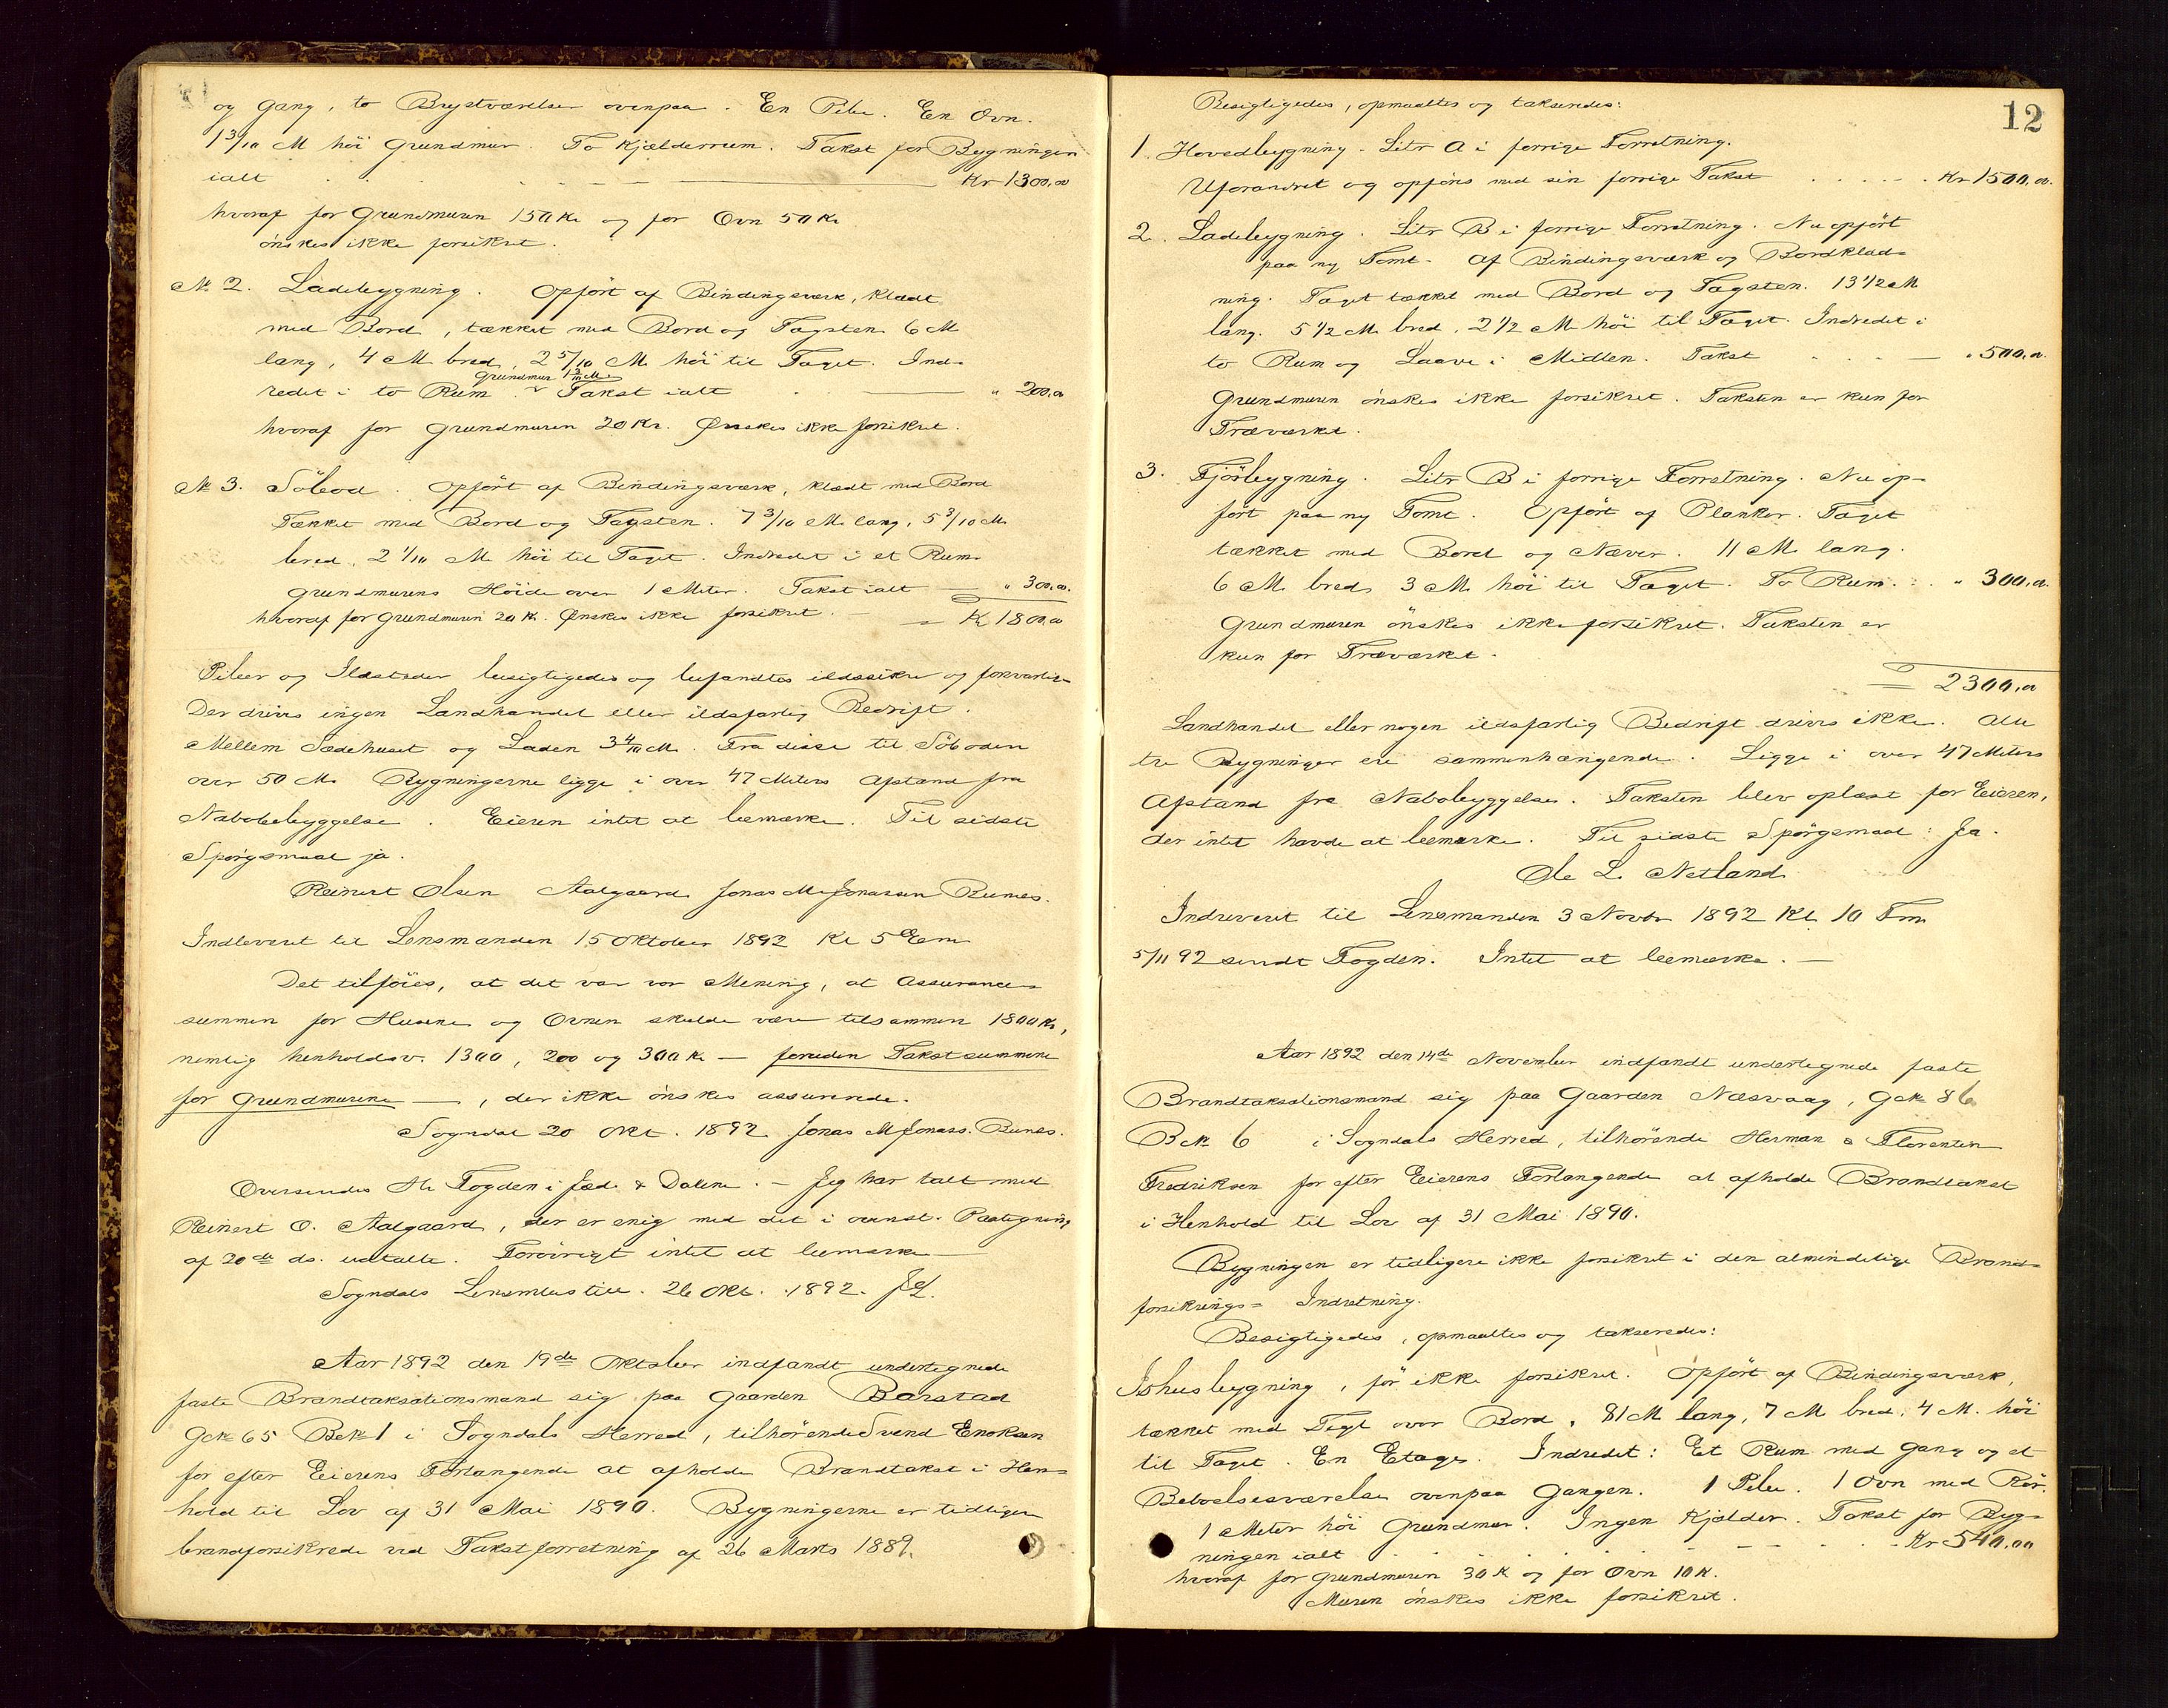 og Gang, to Brystværelser ovenpaa. En Pibe. En Ovn.
1 3/10 M höi Grundmur. To Kjælderrum. Takst for Bygningen
ialt Kr 1300,00
hvoraf for Grundmuren 150 Kr og for Ovn 50 Kr
önskes ikke forsikret.
No 2. Ladebygning. Opfört af Bindingsværk, klædt
med Bord, tækket med Bord og Tagsten 6 M
lang, 4 M bred, 2 5/10 M höi til Taget. Ind-
Grundmur 1 2/10 M
redet i to Rum. Takst ialt " 200,00
hvoraf for Grundmuren 20 Kr. Ønskes ikke forsikret.
No 3. Söbod. Opfört af Bindingsværk, klædt med Bord
Tækket med Bord og Tagsten. 7 3/10 M lang, 5 3/10 M
bred, 2 1/10 M höi til Taget. Indredet i et Rum.
Grundmurens Höide over 1 Meter. Takst ialt " 300,00.
hvoraf for Grundmuren 20 Kr. Ønskes ikke forsikret. Kr 1800,00
Piber og Ildsteder besigtigedes og befandtes ildssikre og forsvarlige
Der drives ingen Landhandel eller ildsfarlig Bedrift.
Mellem Sædehuset og Laden 3 4/10 M. Fra disse til Söboden
over 50 M. Bygningerne ligge i over 47 Meters Afstand fra
Nabobebyggelse. Eieren intet at bemærke. Til sidste
Spörgsmaal ja.
Reinert Olsen Aalgaard Jonas M Jonassen Bunes.
Indleveret til Lensmanden 15 Oktober 1892 Kl 5 Em
Det tilföies, at det var vor Mening, at Assurance-
summen for Husene og Ovnen skulde være tilsammen 1800 Kr,
nemlig henholdsv. 1300, 200 og 300 Kr — foruden Takstsummene
for Grundmurene —, der ikke önskes assurerede.
Sogndal 20 Okt. 1892. Jonas M Jonass. Bunes.
Oversendes Hr Fogden i Jæd. & Dalene. — Jeg har talt med
Reinert O. Aalgaard, der er enig med det i ovenst. Paategning
af 20de ds. udtalte. Forövrigt intet at bemærke
Sogndals Lensmdsbest. 26 Okt. 1892.
Aar 1892 den 19de Oktober indfandt undertegnede
faste Brandtaksationsmænd sig paa Gaarden Barstad
GNo 65 BNo 1 i Sogndals Herred, tilhörende Svend Enoksen
for efter Eierens Forlangende at afholde Brandtakst i Hen-
hold til Lov af 31 Mai 1890. Bygningerne er tidligere
brandforsikrede ved Takstforretning af 26 Marts 1889.
12
Besigtigedes, opmaaltes og takseredes:
1. Hovedbygning. Litr A i forrige Forretning.
Uforandret og opföres med sin forrige Takst Kr 1500,00.
2. Ladebygning. Litr B i forrige Forretning. Nu opfört
paa ny Tomt. Af Bindingsværk og Bordklæd-
ning. Taget tækket med Bord og Tagsten. 13 1/2 M
lang. 5 1/2 M bred. 2 1/2 M höi til Taget. Indredet i
to Rum og Laave i Midten. Takst " 500,00.
Grundmuren önskes ikke forsikret. Taksten er kun for
Træværket.
3. Fjösbygning. Litr B i forrige Forretning. Nu op-
fört paa ny Tomt. Opfört af Planker. Taget
tækket med Bord og Næver. 11 M lang.
6 M bred, 3 M höi til Taget. To Rum. " 300,00.
Grundmuren önskes ikke forsikret. Taksten er
kun for Træværket.
2300,00
Landhandel eller nogen ildsfarlig Bedrift drives ikke. Alle
tre Bygninger ere sammenhængende. Ligge i over 47 Meters
Afstand fra Nabobyggelse. Taksten blev oplæst for Eieren,
der intet havde at bemærke. Til sidste Spörgsmaal: Ja.
Ole L. Netland
Indleveret til Lensmanden 3 Novbr 1892 Kl. 10 Fm
5/11 92 sendt Fogden. Intet at bemærke. —
Aar 1892 den 14de November indfandt undertegnede faste
Brandtaksationsmænd sig paa Gaarden Næsvaag, GNo 86
BNo 6 i Sogndals Herred, tilhörende Herman & Florentin
Fredriksen for efter Eierens Forlangende at afholde Brandtakst
i Henhold til Lov af 31 Mai 1890.
Bygningen er tidligere ikke forsikret i den almindelige Brand-
forsikrings-Indretning.
Besigtigedes, opmaaltes og takseredes:
Ishusbygning, för ikke forsikret. Opfört af Bindingsværk,
tækket med Tegl over Bord. 81 M lang, 7 M bred. 4 M. höi
til Taget. En Etage. Indredet: Et Rum med Gang og et
Beboelsesværelse ovenpaa Gangen. 1 Pibe. 1 Ovn med Rör.
1 Meter höi Grundmur. Ingen Kjælder. Takst for Byg-
ningen ialt Kr 540,00
hvoraf for Grundmuren 30 K og for Ovn 10 K.
Muren önskes ikke forsikret.